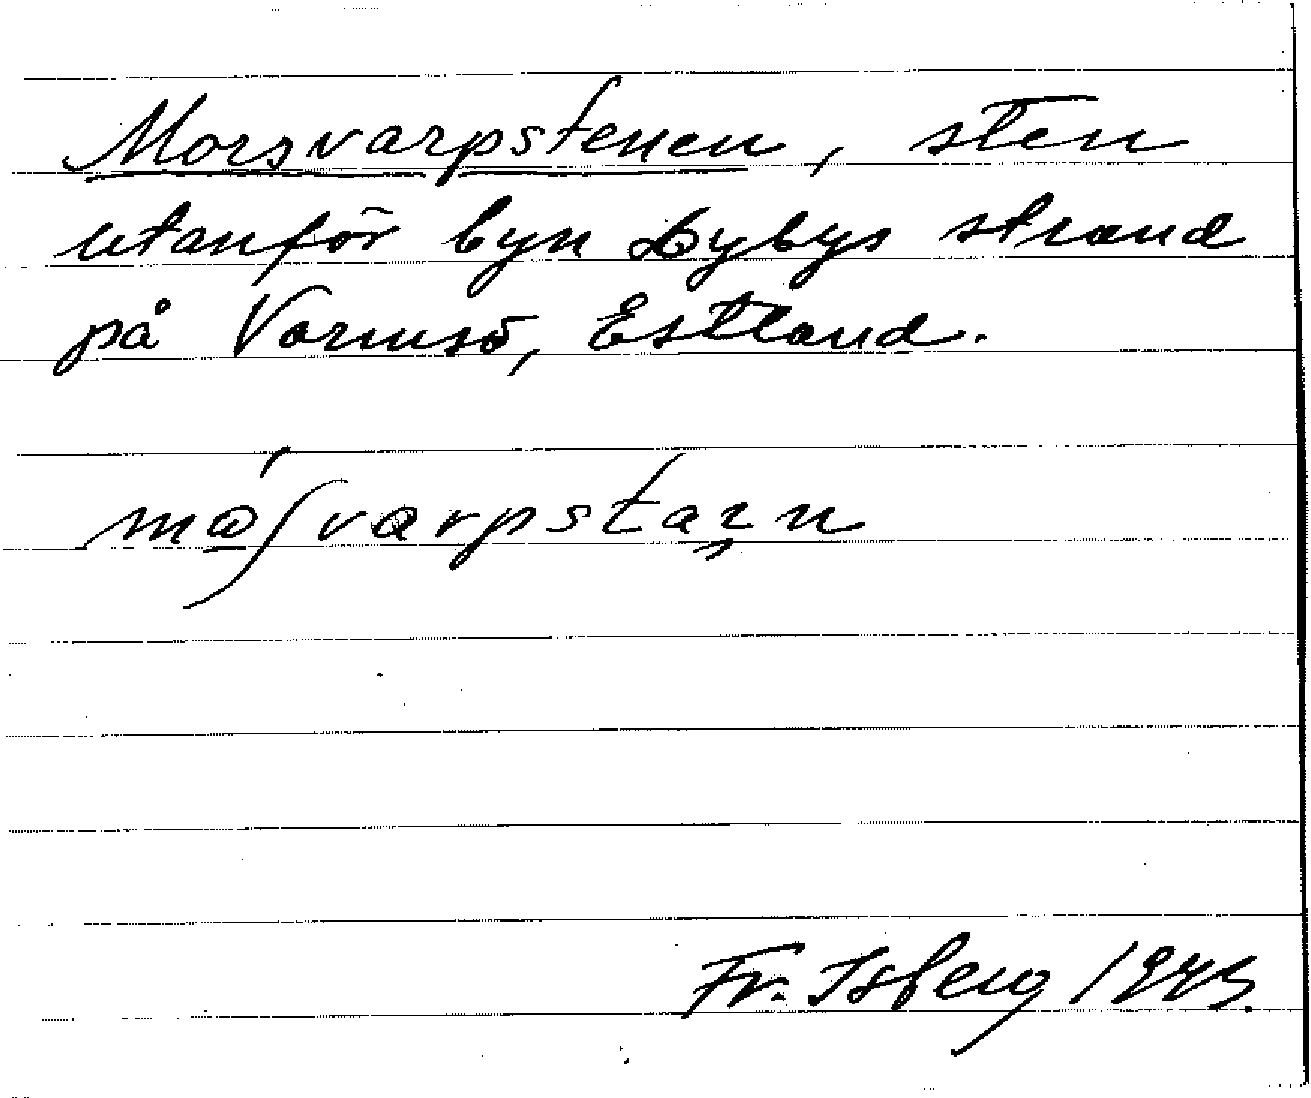 Morsvarpstenen, sten
utanför byn Dybys strand
på Vormsö, Estland.
Fr. Isberg 1943.